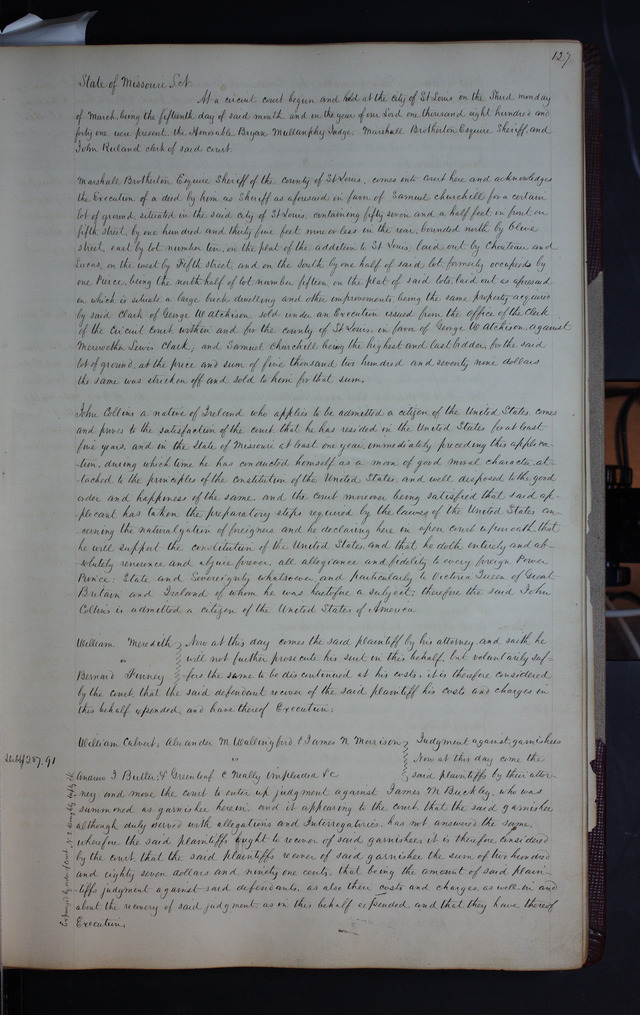 127
State of Missouri Sct.
At a circuit court begun and held at the city of St Louis on the third monday
of March, being the fifteenth day of said month and in the year of our Lord one thousand eight hundred and
forty one were present, the Honorable Bryan Mullanphy Judge, Marshall Brotherton Esquire Sheriff, and
John Ruland clerk of said court.
Marshall Brotherton Esquire Sheriff of the county of St Louis, comes into court here and acknowledges
the Execution of a deed by him as Sheriff as aforesaid in favor of Samuel Churchill for a certain
lot of ground, situated in the said city of St Louis, containing fifty seven and a half feet in front on
fifth street, by one hundred and thirty five feet more or less in the rear, bounded north by Olive
street, east by lot number ten, on the plat of the addition to St Louis, laid out by Chouteau and
Lucas, on the west by Fifth street, and on the South by one half of said lot, formerly occupied by
one Peirce, being the north half of lot number fifteen on the plat of said lots, laid out as aforesaid
on which is situate a large brick dwelling and other improvements being the same property acquired
by said Clark of George W Atchison sold under an Execution issued from the office of the clerk
of the Circuit court within and for the county of St Louis, in favor of George W Atchison, against
Merewether Lewis Clark, and Samuel Churchill being the highest and last bidder, for the said
lot of ground, at the price and sum of five thousand two hundred and seventy nine dollars
the same was stricken off and sold to him for that sum.
John Collins a native of Ireland who applies to be admitted a citizen of the United States, comes
and proves to the satisfaction of the court that he has resided in the United States for at least
five years, and in the State of Missouri at least one year, immediately preceding this applica-
tion, during which time he has conducted himself as a man of good moral character, at-
tached to the principles of the constitution of the United States, and well disposed to the good
order and happiness of the same, and the court moreover being satisfied that said ap-
plicant has taken the preparatory steps required by the laws of the United States con-
cerning the naturalization of foreigners and he declaring here in open court upon oath, that
he will support the constitution of the United States, and that he doth entirely and ab-
solutely renounce and abjure forever, all allegiance and fidelity to every foreign Power
Prince, State and Sovereignty whatsoever, and particularly to Victoria Queen of Great
Britain and Ireland of whom he was heretofore a subject; therefore the said John
Collins is admitted a citizen of the United States of America
William Meredith Now at this day comes the said plaintiff by his attorney and saith he
" will not further prosecute his suit in this behalf, but voluntarily suf-
Bernard Finney fers the same to be discontinued at his costs; it is therefore considered
by the court, that the said defendant recover of the said plaintiff his costs and charges in
this behalf expended, and have thereof Execution;
William Calvert, Alexander M Wallingbird & James N Morrison Judgment against garnishees
" Now at this day come the
Andrew J Butler, A Greenleaf C Neally impleaded &c said plaintiffs by their attor-
$287.91
ney and move the court to enter up judgment against James M Buckley, who was
summoned as garnishee herein, and it appearing to the court, that the said garnishee
although duly served with allegations and Interrogatories, has not answered the same,
wherefore the said plaintiffs ought to recover of said garnishee; it is therefore considered
by the court, that the said plaintiffs recover of said garnishee the sum of two hundred
and eighty seven dollars and ninety one cents, that being the amount of said plain-
tiffs judgment against said defendants, as also their costs and charges, as well in and
about the recovery of said judgment, as in this behalf expended and that they have thereof
Execution;